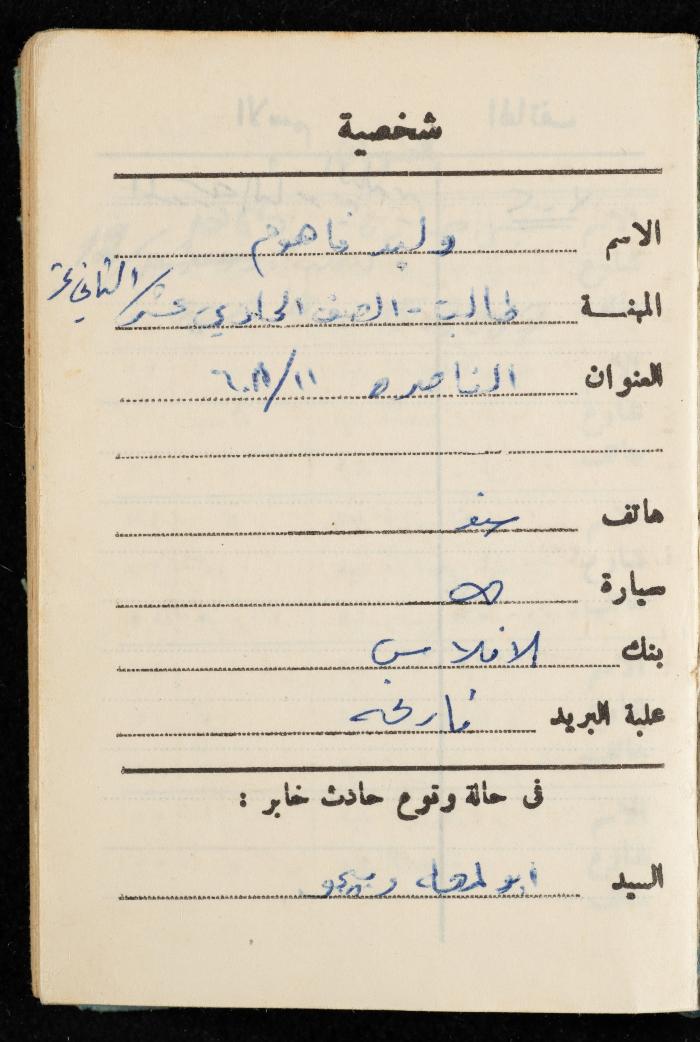 شخصية
الاسم وليد فاهوم
المهنة طالب - الصف الحادي عشر / الثاني عشر
العنوان الناصره
هاتف
سيارة
بنك الافلاس
علبة البريد فارغه
فى حالة وقوع حادث خابر :
السيد ابو